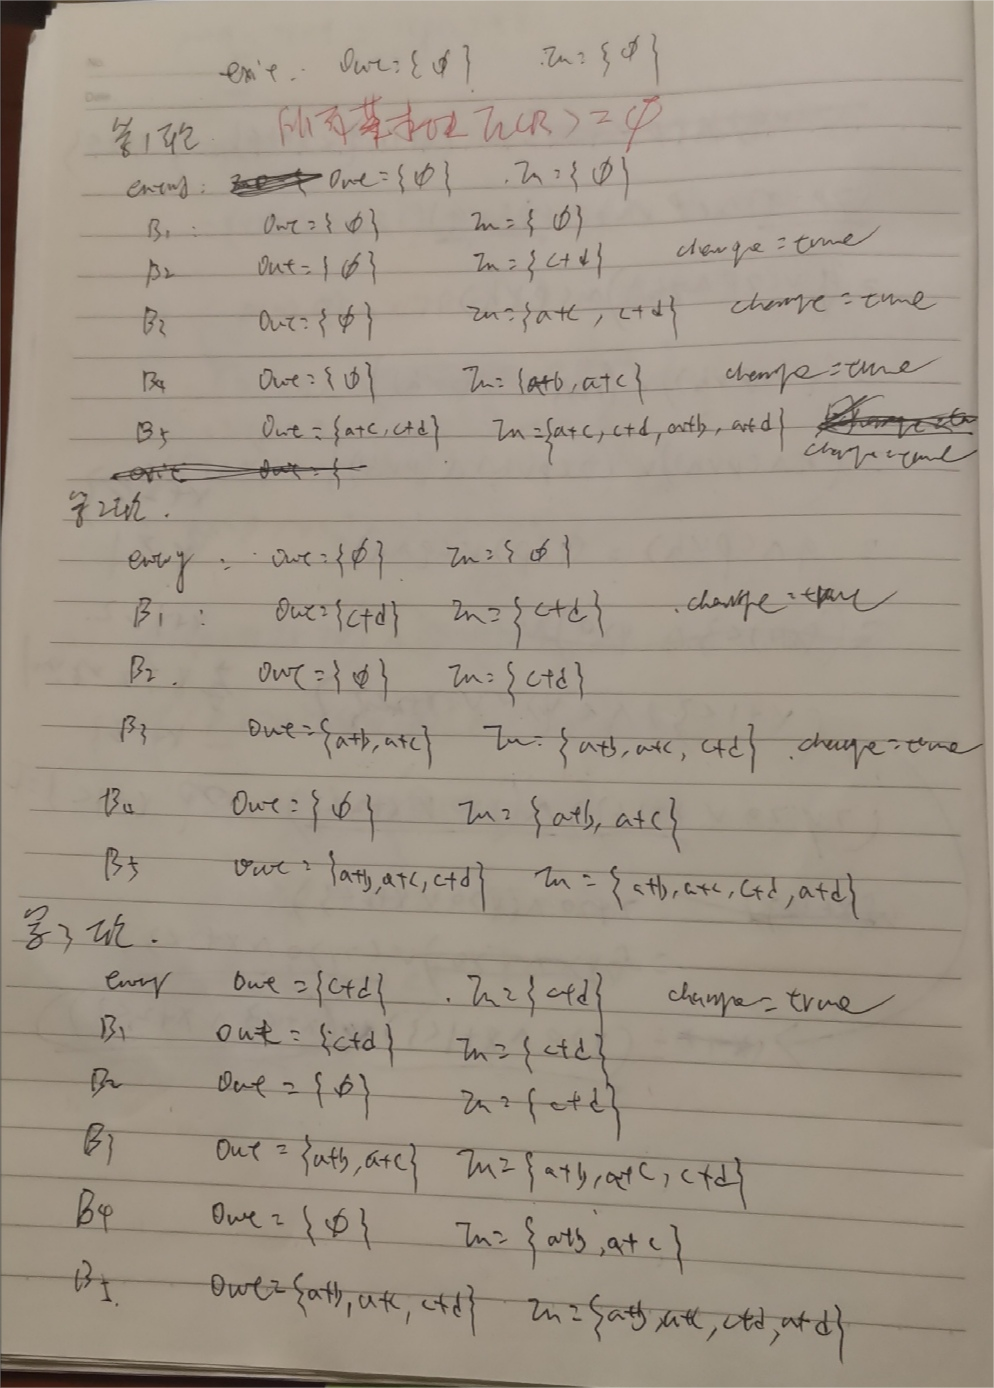 exit: Out={φ} In={φ}
第1次 所有基本块 In(B)=φ
entry: Out={φ} In={φ}
B1: Out={φ} In={φ}
B2 Out={φ} In={c+d} change=true
B3 Out={φ} In={a+c, c+d} change=true
B4 Out={φ} In={a+b, a+c} change=true
B5 Out={a+c, c+d} In={a+c, c+d, a+b, a+d}
change=true
第2次.
entry: Out={φ} In={φ}
B1: Out={c+d} In={c+d} change=true
B2. Out={φ} In={c+d}
B3 Out={a+b, a+c} In={a+b, a+c, c+d} change=true
B4 Out={φ} In={a+b, a+c}
B5 Out={a+b, a+c, c+d} In={a+b, a+c, c+d, a+d}
第3次.
entry Out={c+d} In={c+d} change=true
B1 Out={c+d} In={c+d}
B2 Out={φ} In={c+d}
B3 Out={a+b, a+c} In={a+b, a+c, c+d}
B4 Out={φ} In={a+b, a+c}
B5. Out={a+b, a+c, c+d} In={a+b, a+c, c+d, a+d}